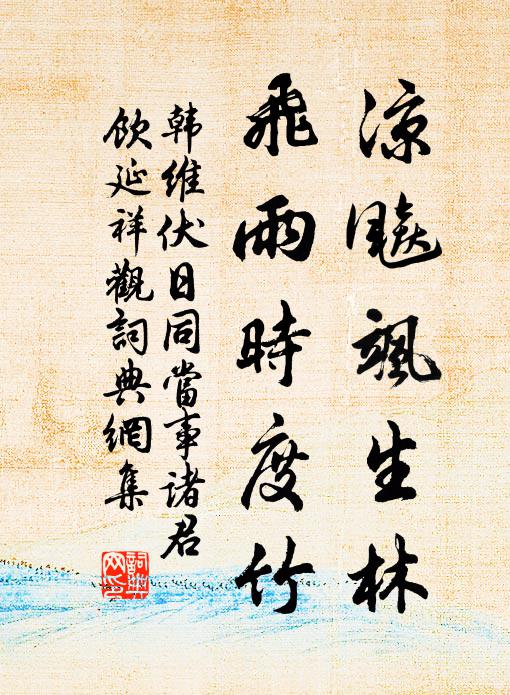 涼飈颯生林
飛雨時度竹
韩維伏日同當事诸君
飲延祥觀詞典網集